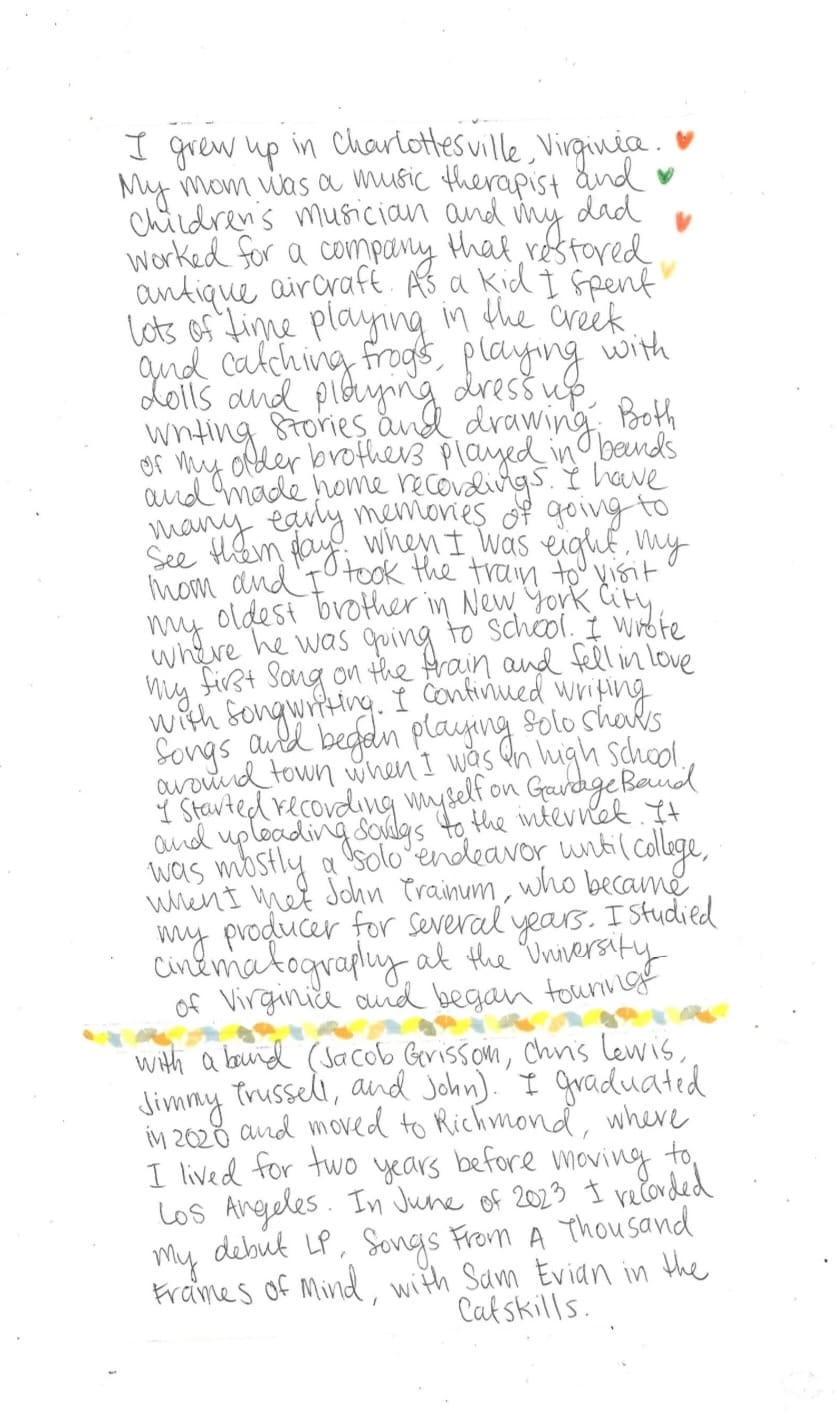 I grew up in Charlottesville, Virginia.
My mom was a music therapist and
children's musician and my dad
worked for a company that restored
antique aircraft. As a kid I spent
lots of time playing in the creek
and catching frogs, playing with
dolls and playing dress up,
writing stories and drawing. Both
of my older brothers played in bands
and made home recordings. I have
many early memories of going to
see them play. When I was eight, my
mom and I took the train to visit
my oldest brother in New York City,
where he was going to school. I wrote
my first song on the train and fell in love
with songwriting. I continued writing
songs and began playing solo shows
around town when I was in high school.
I started recording myself on GarageBand
and uploading songs to the internet. It
was mostly a solo endeavor until college,
when I met John Trainum, who became
my producer for several years. I studied
cinematography at the University
of Virginia and began touring
with a band (Jacob Grissom, Chris Lewis,
Jimmy Trussell, and John). I graduated
in 2020 and moved to Richmond, where
I lived for two years before moving to
Los Angeles. In June of 2023 I recorded
my debut LP, Songs From A Thousand
Frames of Mind, with Sam Evian in the
Catskills.